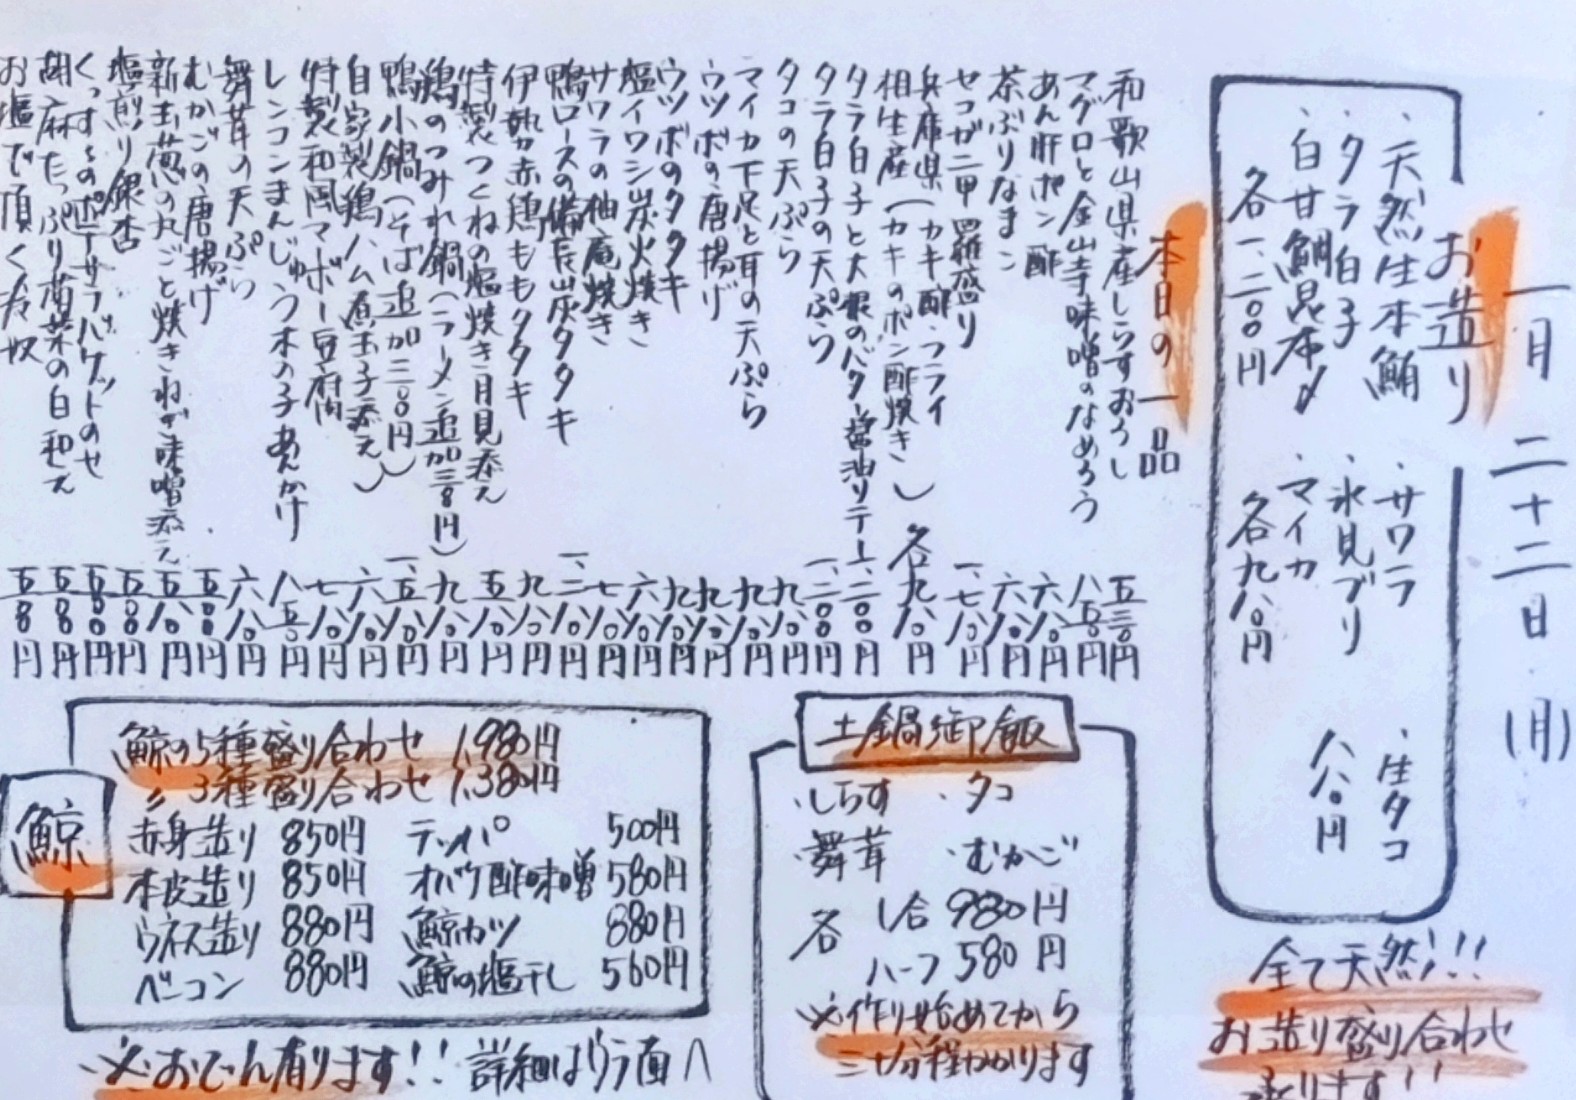 一月二十二日(月)
お造り
・天然生本鮪
・タラ白子
・白甘鯛昆布〆
各一、二〇〇円
・サワラ
・氷見ブリ
・マイカ
各九八〇円
・生タコ
八八〇円
全て天然!!
お造り盛り合わせ
承ります!!
本日の一品
和歌山県産しらすおろし 五三〇円
マグロと金山寺味噌のなめろう 八五〇円
あん肝ポン酢 六八〇円
茶ぶりなまこ 六八〇円
セコガニ甲羅盛り 一、七八〇円
兵庫県(カキ酢・フライ
相生産(カキのポン酢焼き) 各九八〇円
タラ白子と大根のバター醤油ソテー 一、二〇〇円
タラ白子の天ぷら 一、二〇〇円
タコの天ぷら 九八〇円
マイカ下足と耳の天ぷら 九八〇円
ウツボの唐揚げ 九八〇円
ウツボのタタキ 九八〇円
塩イワシ炭火焼き 六八〇円
サワラの柚庵焼き 七八〇円
鴨ロースの備長炭タタキ 一、二八〇円
伊勢赤鶏ももタタキ 九八〇円
特製つくねの塩焼き月見添え 五八〇円
鶏のつみれ鍋(ラーメン追加三三〇円) 九八〇円
鴨小鍋(そば追加三三〇円) 一、五八〇円
自家製鶏ハム煮玉子添え) 六八〇円
特製和風マーボー豆腐 七八〇円
レンコンまんじゅう木の子あんかけ 八五〇円
舞茸の天ぷら 六八〇円
むかごの唐揚げ 五八〇円
新玉葱の丸ごと焼きねぎ味噌添え 五八〇円
塩煎り銀杏 五八〇円
サラバゲットのせ 五八〇円
胡麻たっぷり菊菜の白和え 五八〇円
お塩で頂く冷奴 五八〇円
土鍋御飯
・しらす ・タコ
・舞茸 ・むかご
各 1合 980円
ハーフ 580円
※作り始めてから
三十分程かかります
鯨
鯨の5種盛り合わせ 1,980円
〃 3種盛り合わせ 1,380円
赤身造り 850円 テッパ 500円
本皮造り 850円 オバケ酢味噌 580円
ウネス造り 880円 鯨カツ 880円
ベーコン 880円 鯨の塩干し 560円
※おでん有ります!! 詳細はウラ面へ